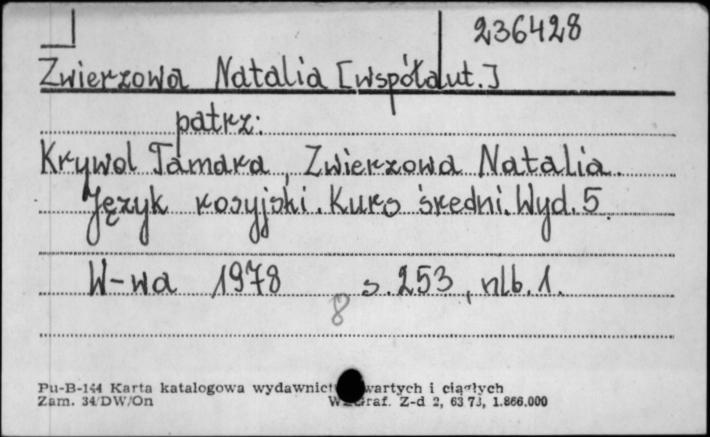 236428
Zwierzowa Natalia [współaut.]
patrz:
Krywol Tamara, Zwierzowa Natalia.
Język rosyjski. Kurs średni. Wyd. 5.
W-wa 1978 s. 253, nlb. 1.
8
Pu-B-144 Karta katalogowa wydawnict wartych i ciągłych
Zam. 34/DW/On Graf. Z-d 2, 63 73, 1.866.000